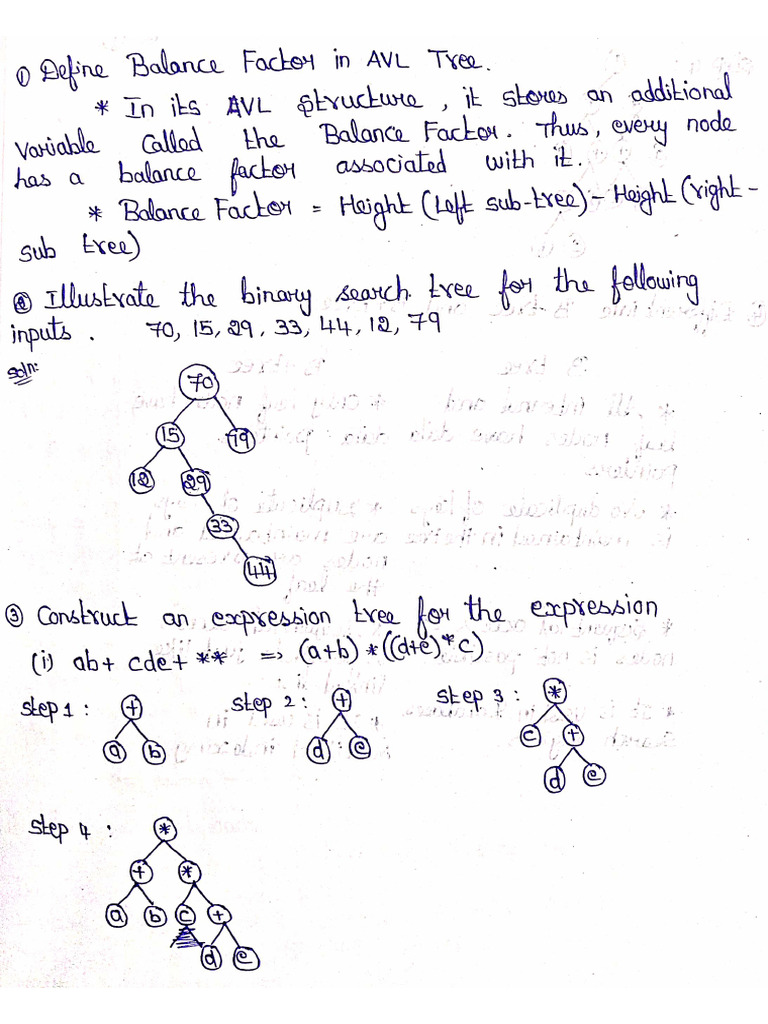 ① Define Balance Factor in AVL Tree.
* In its AVL structure, it stores an additional
variable called the Balance Factor. Thus, every node
has a balance factor associated with it.
* Balance Factor = Height (Left sub-tree) - Height (right -
sub tree)
② Illustrate the binary search tree for the following
inputs. 70, 15, 29, 33, 44, 12, 79
Soln:
70
15 79
12 29
33
44
③ Construct an expression tree for the expression
(i) ab+ cde+ ** => (a+b) * ((d+e) * c)
step 1 : + step 2 : + step 3 : *
a b d : e c +
d e
step 4 : *
+ *
a b c +
d e